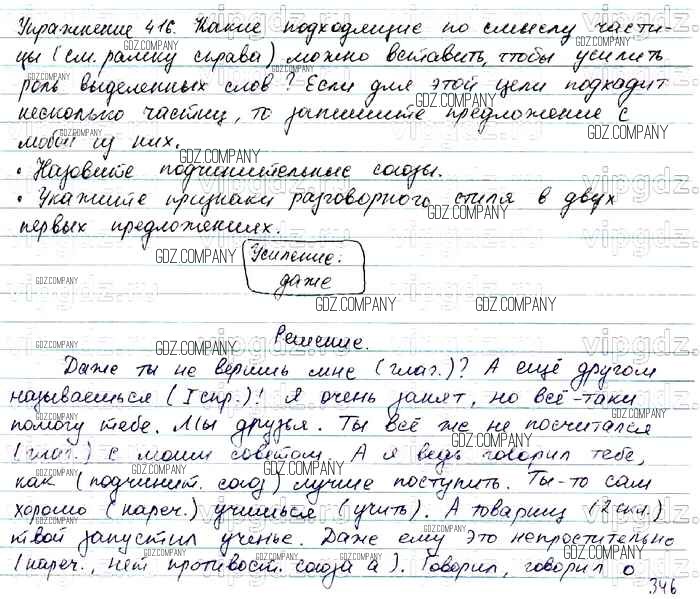 Упражнение 416. Какие подходящие по смыслу части-
цы (см. рамку справа) можно вставить, чтобы усилить
роль выделенных слов? Если для этой цели подходит
несколько частиц, то запишите предложение с
любой из них.
• Назовите подчинительные союзы.
• Укажите признаки разговорного стиля в двух
первых предложениях.
Усиление:
даже
Решение.
Даже ты не веришь мне (глаг.)? А ещё другом
называешься (I спр.)! Я очень занят, но всё-таки
помогу тебе. Мы друзья. Ты всё же не посчитался
(глаг.) с моим советом. А я ведь говорил тебе,
как (подчинит. союз) лучше поступить. Ты-то сам
хорошо (нареч.) учишься (учить). А товарищ (2 скл.)
твой запустил ученье. Даже ему это непростительно
(нареч., нет противост. союза а). Говорил, говорил о
346
GDZ.COMPANY
vipgdz.ru